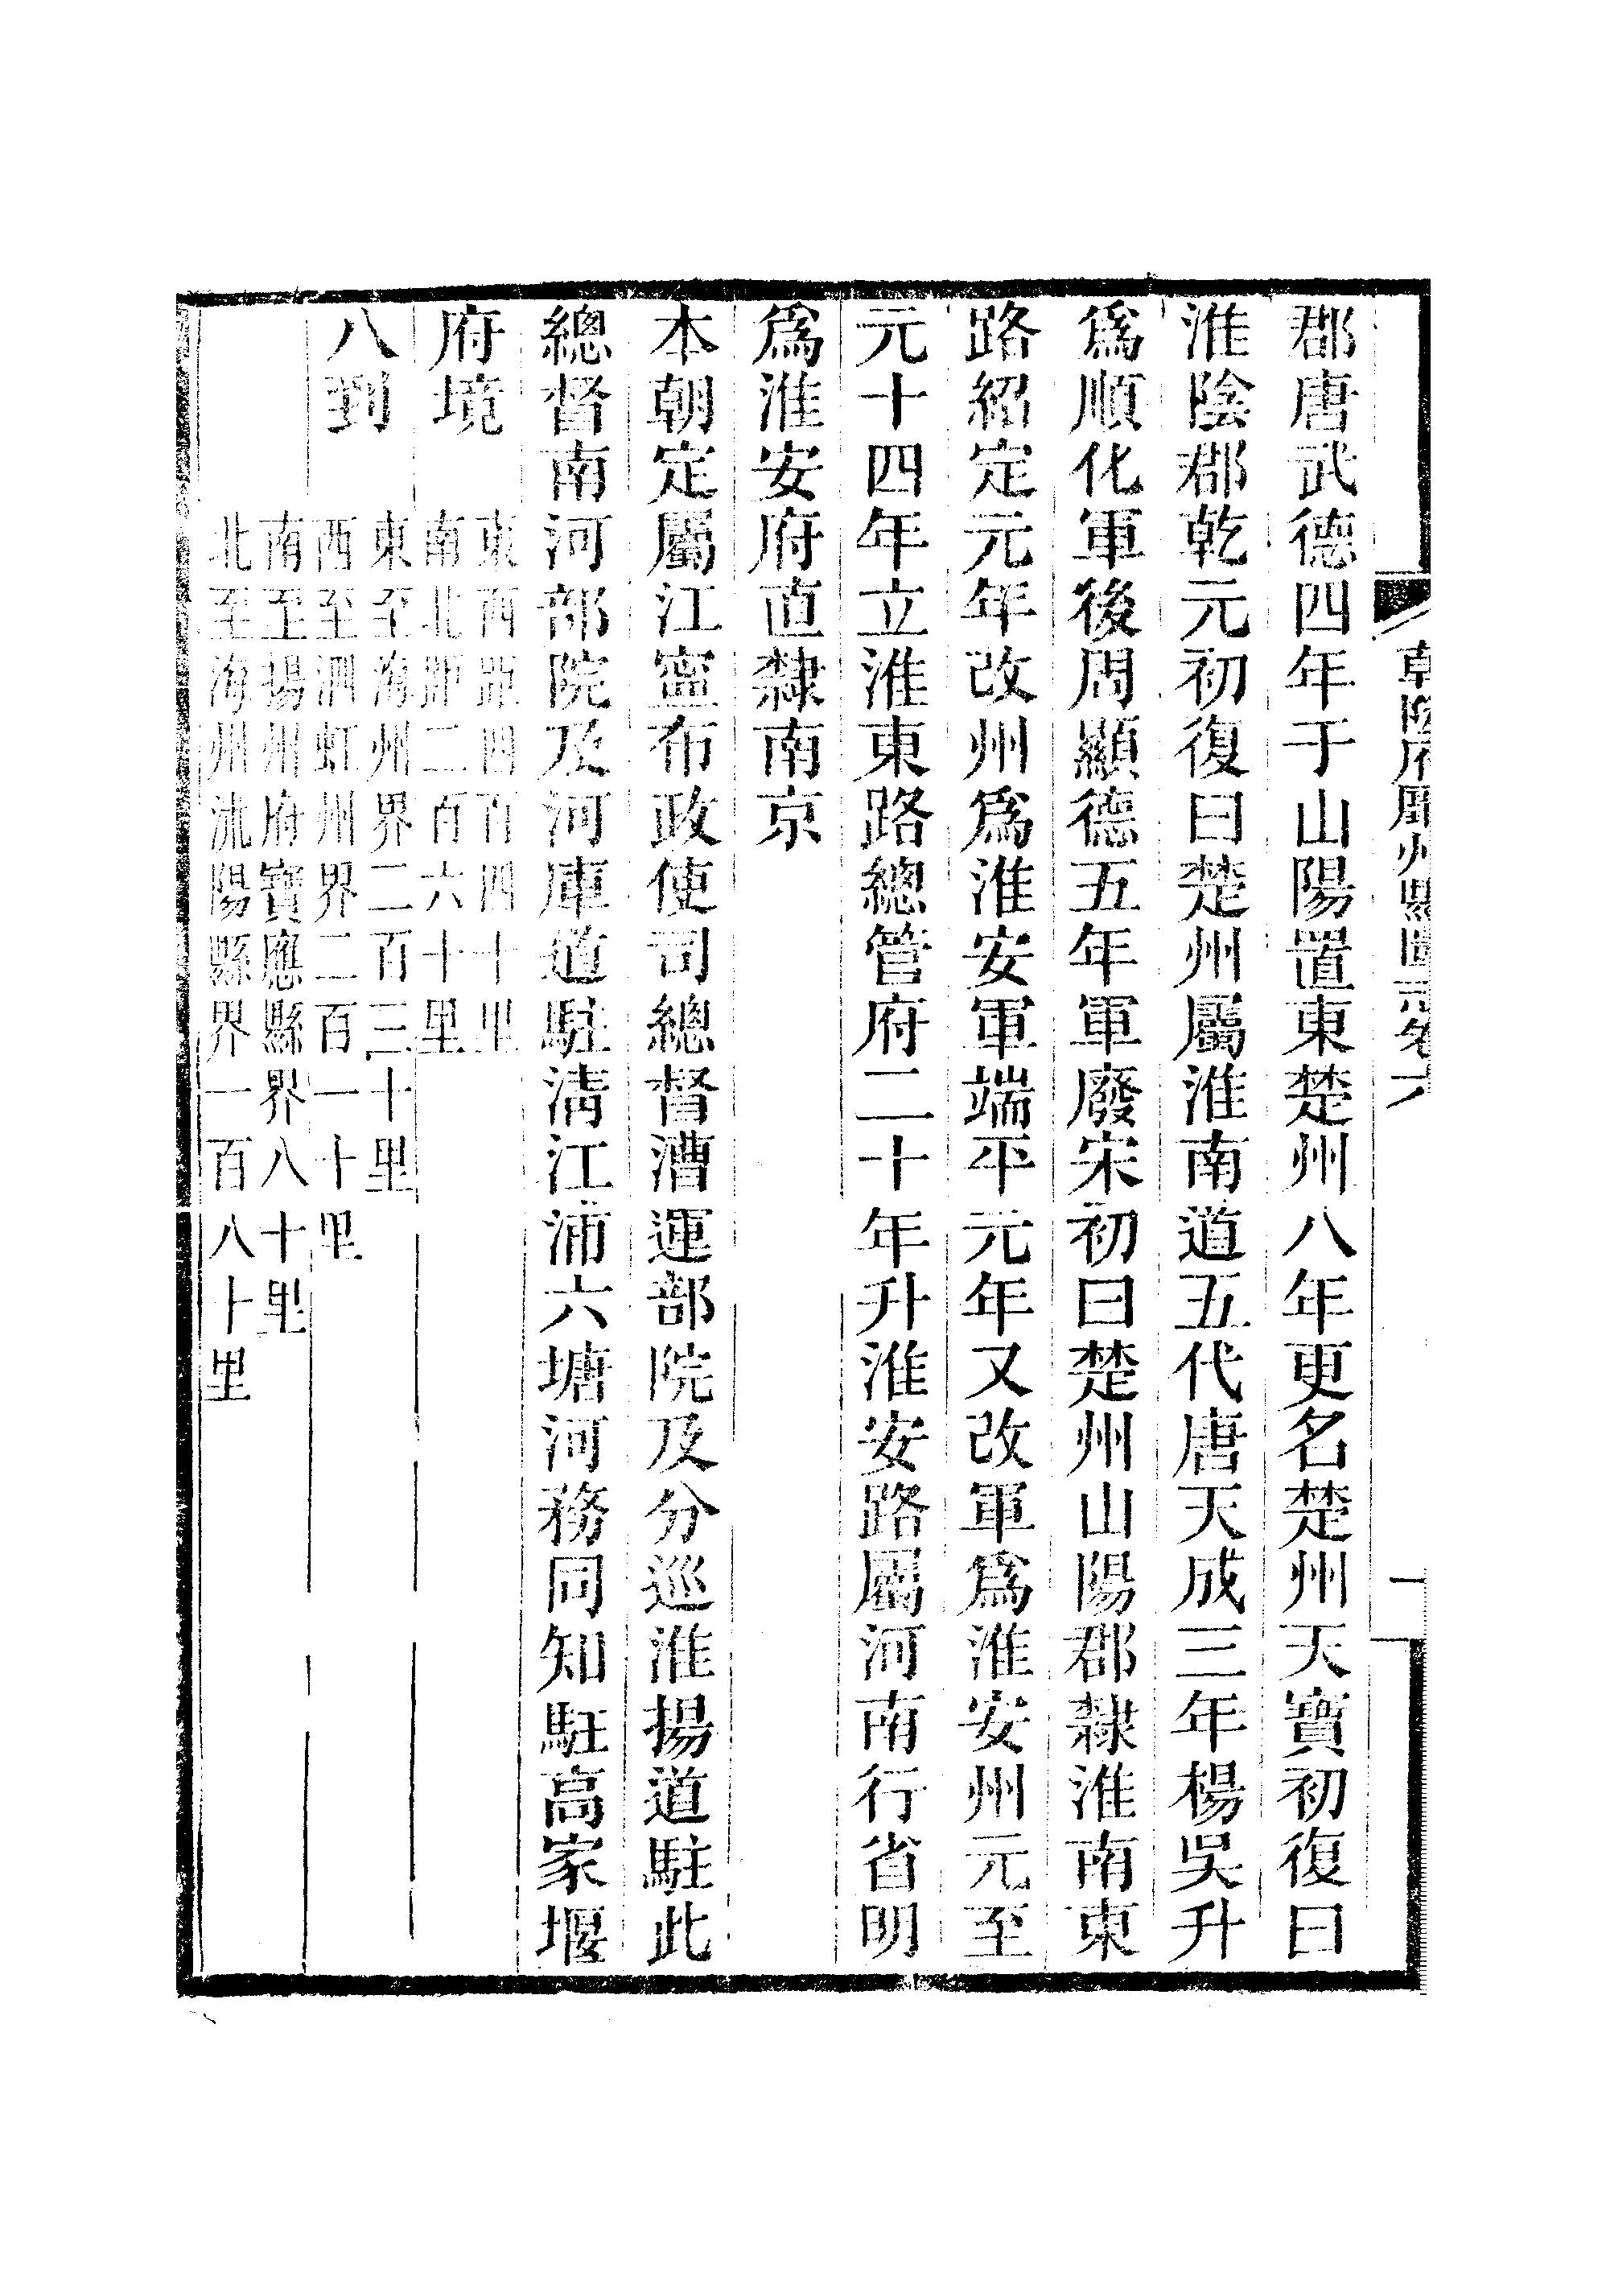 郡唐武德四年于山陽置東楚州八年更名楚州天寶初復曰
淮陰郡乾元初復曰楚州屬淮南道五代唐天成三年楊吳升
爲順化軍後周顯德五年軍廢宋初曰楚州山陽郡隸淮南東
路紹定元年改州爲淮安軍端平元年又改軍爲淮安州元至
元十四年立淮東路總管府二十年升淮安路屬河南行省明
爲淮安府直隸南京
本朝定屬江寧布政使司總督漕運部院及分巡淮揚道駐此
總督南河部院及河庫道駐淸江浦六塘河務同知駐高家堰
府境
東西距四百四十里
南北距二百六十里
八到
東至海州界二百三十里
西至泗虹州界二百一十里
南至揚州府寶應縣界八十里
北至海州沭陽縣界一百八十里